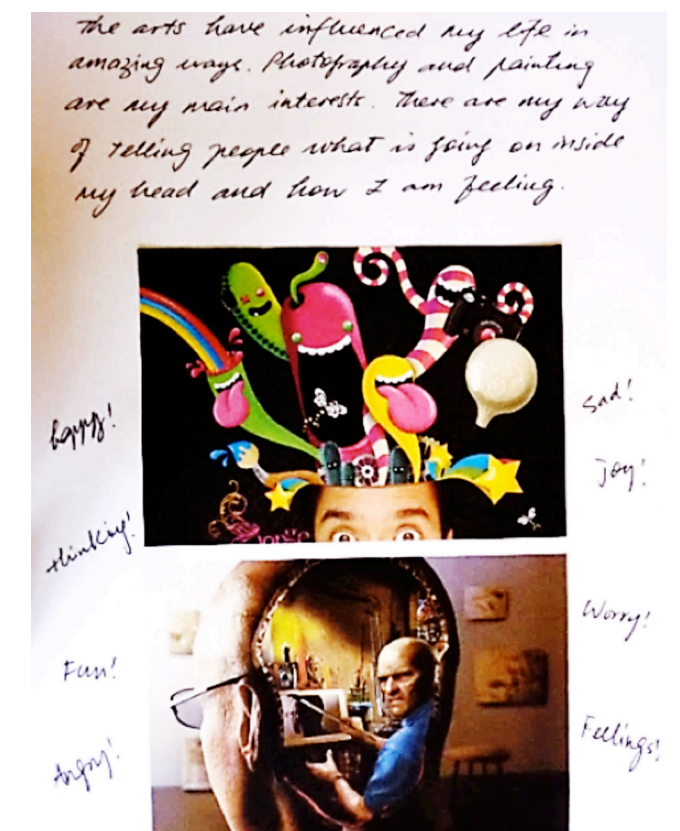 The arts have influenced my life in
amazing ways. Photography and painting
are my main interests. There are my way
of telling people what is going on inside
my head and how I am feeling.
happy!
Sad!
Joy!
thinking!
Worry!
Fun!
Feelings!
Angry!